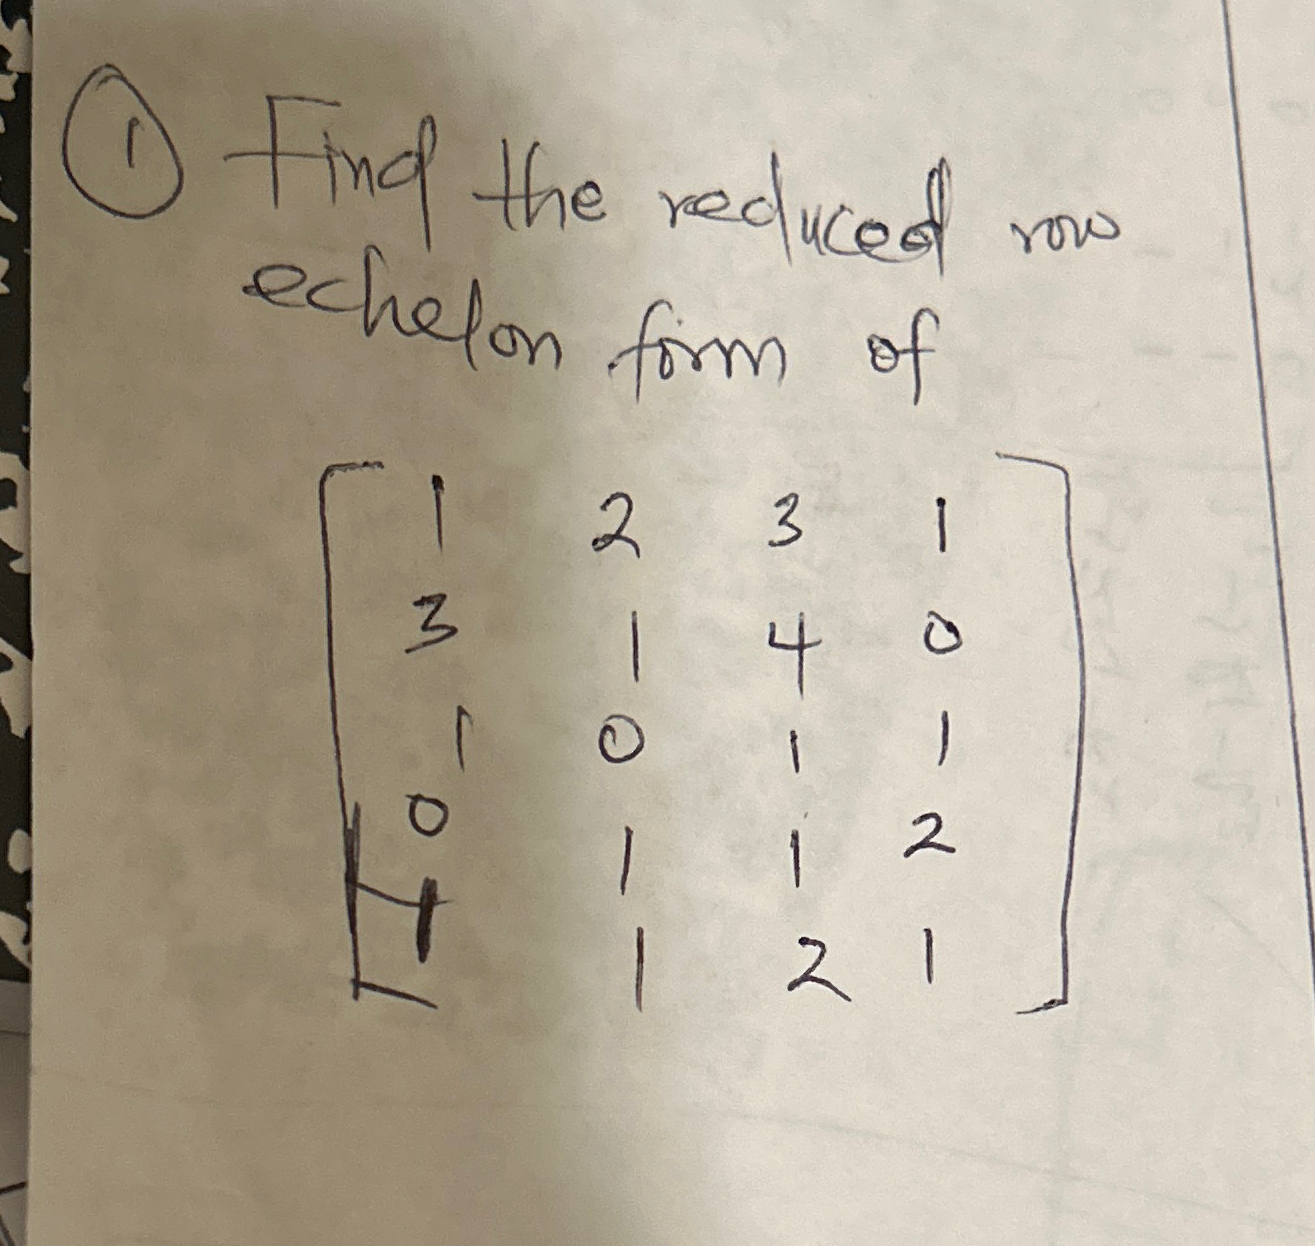 ① Find the reduced row
echelon form of
1 2 3 1
3 1 4 0
1 0 1 1
0 1 1 2
1 1 2 1